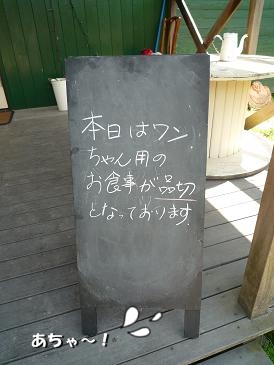 本日はワン
ちゃん用の
お食事が品切
となっております
あちゃ〜!